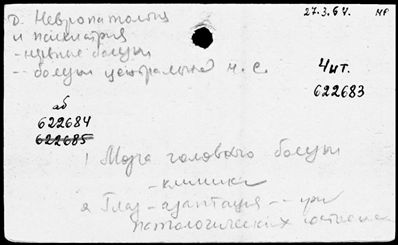 Д. Невропатология 27.3.64. НР
и психиатрия
- нервные болезни
-- болезни центральной н. с.
Чит.
622683
аб
622684
622685
1 Мозга головного болезни
- клиника
2 Глаз - адаптация -- при
патологических